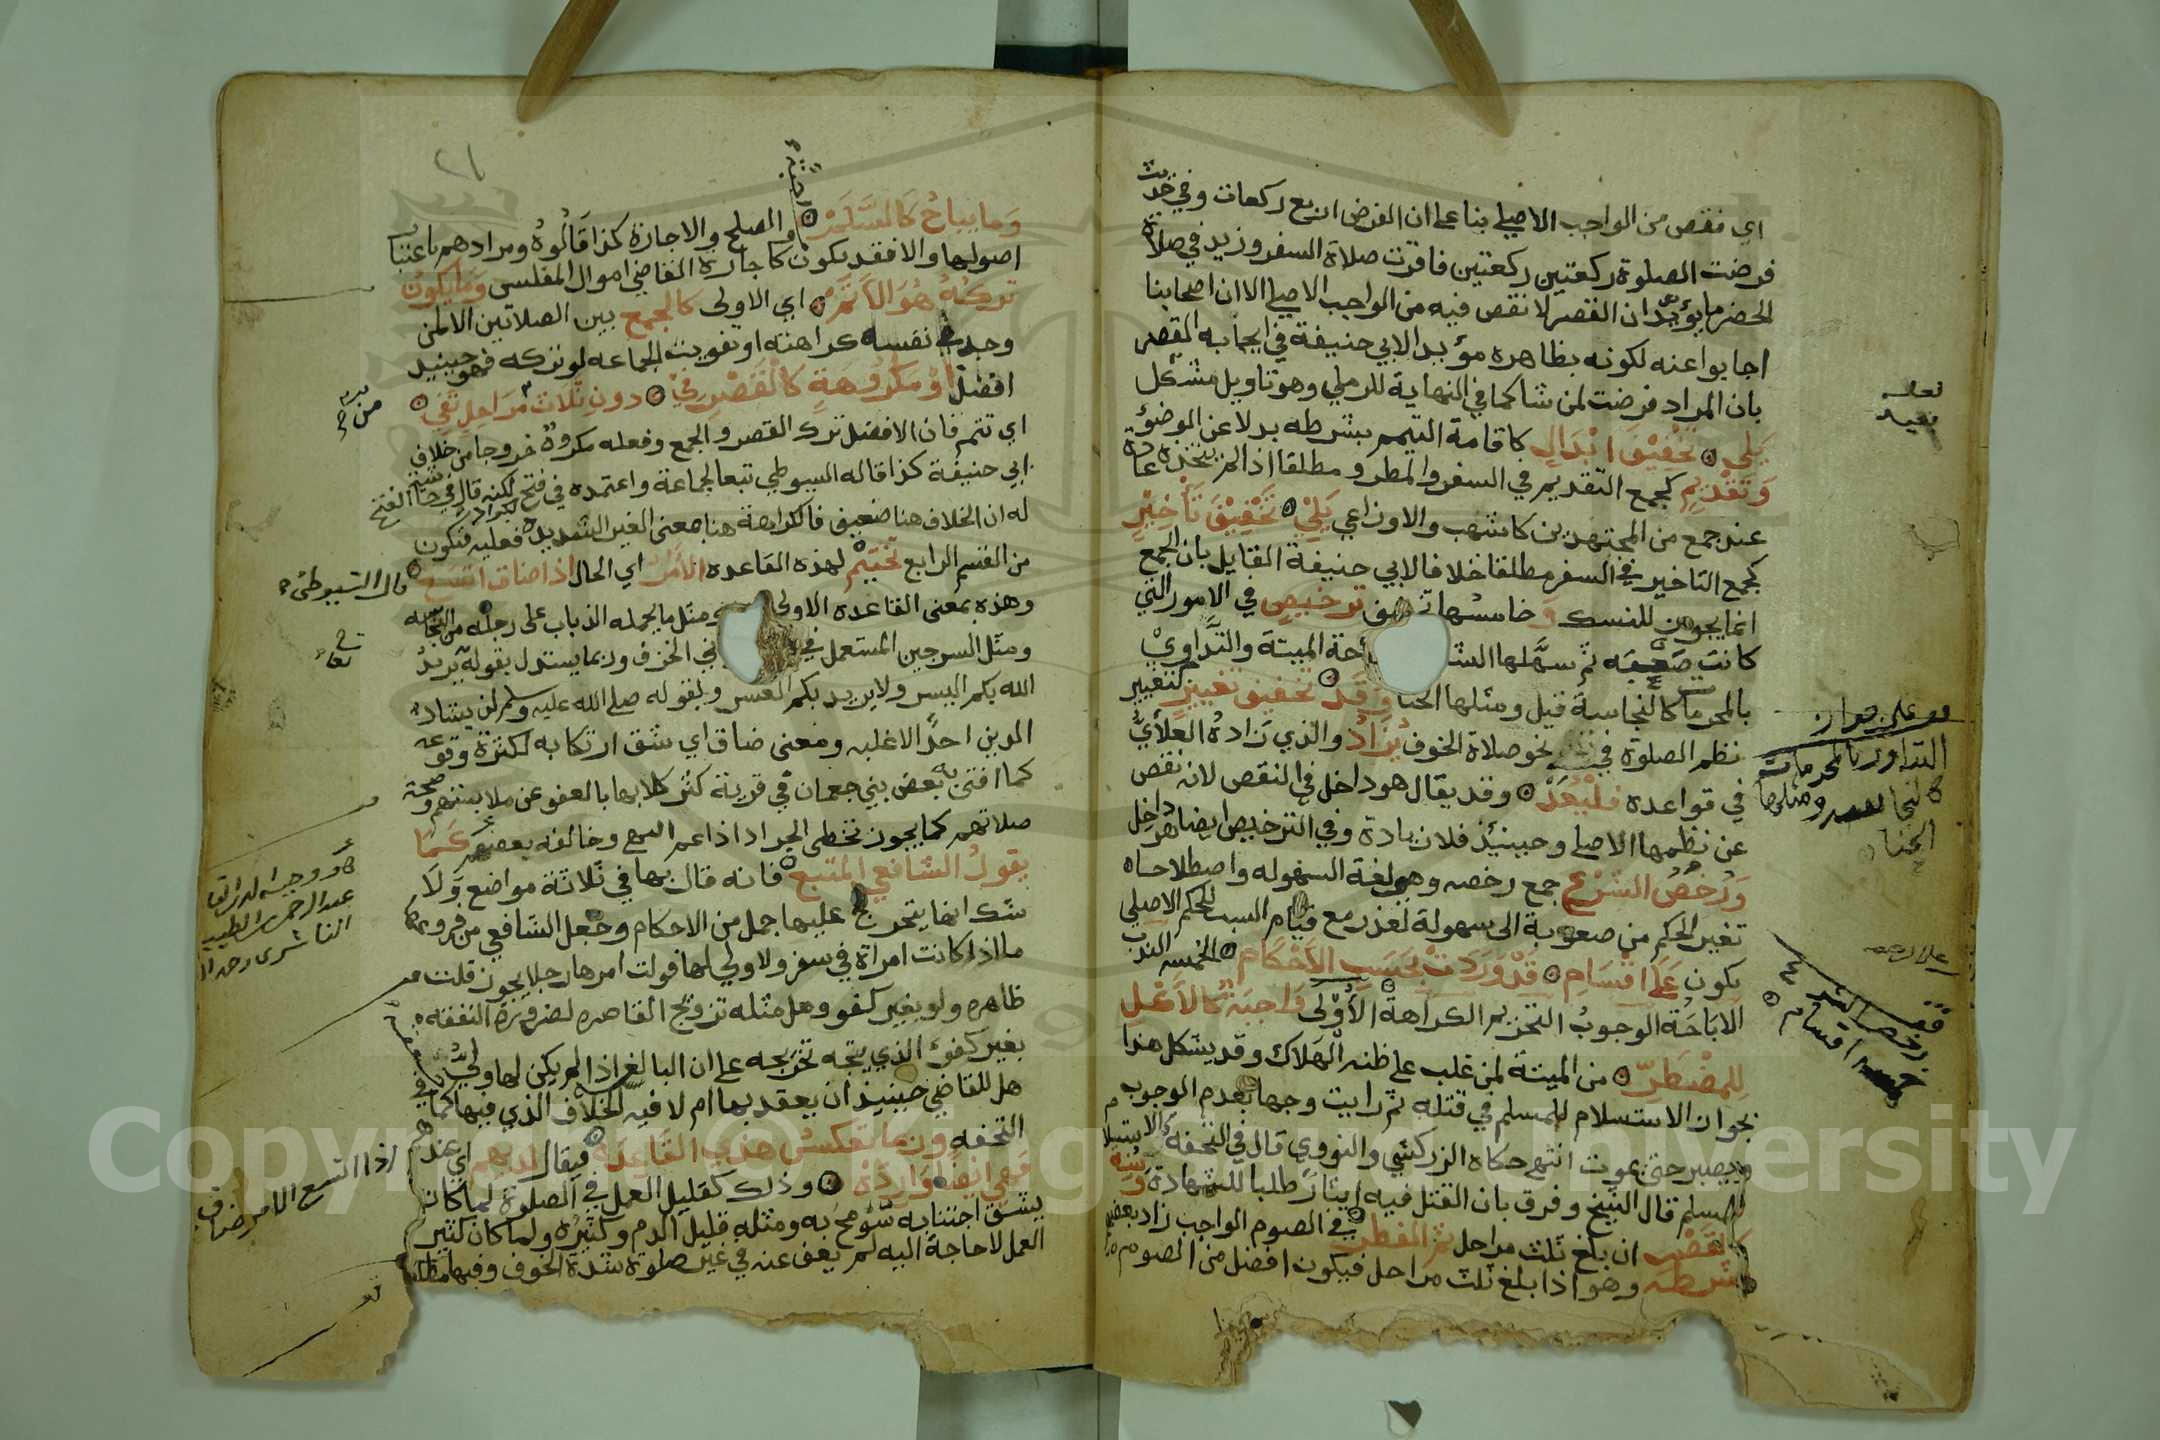 اي فنقص من الواجب الاصلي بناء على ان الفرض اربع ركعات وفي حديث
فرضت الصلوة ركعتين ركعتين فاقرت صلاة السفر وزيد في صلاة
الحضر ما يؤيد ان القصر لا نقص فيه من الواجب الاصلي الا ان اصحابنا
اجابوا عنه لكونه بظاهره مؤيد الابي حنيفة في ايجابه القصر
بان المراد فرضت لمن شا كما في النهاية للرملي وهو تاويل مشكل
يلي تخفيف ابدال كاقامة التيمم بشرطه بدلا عن الوضؤ
وتقديم كجمع التقديم في السفر والمطر ومطلقا اذا لم يتخذه عادة
عند جمع من المجتهدين كاشهب والاوزاعي يلي تخفيف تأخير
كجمع التاخير في السفر مطلقا خلافا لابي حنيفة القايل بان الجمع
انما يجوز للنسك وخامسها ترخيص في الامور التي
كانت صعبه ثم سهلها الشا حة الميتة والتداوي
بالمحرمات كالنجاسة قيل ومثلها الخنا وقد تخفيف تغيير كتغيير
نظم الصلوة في نحو صلاة الخوف يزاد والذي زاده العلائي
في قواعده فليعد وقد يقال هو داخل في النقص لانه نقص
عن نظمها الاصلي وحينئذ فلا زيادة وفي الترخيص ايضا هو داخل
ورخص الشرع جمع رخصه وهو لغة السهوله واصطلاحا
تغير الحكم من صعوبة الى سهولة لعذر مع قيام السبب للحكم الاصلي
يكون على اقسام قد وردت بحسب الاحكام الخمسه الندب
الاباحة الوجوب التحريم الكراهة الاولى واجبة كالاكل
للمضطر من الميتة لمن غلب على ظنه الهلاك وقد يشكل هذا
بجواز الاستسلام للمسلم في قتله ثم رايت وجها بعدم الوجوب
ويصبر حتى يموت انتهى حكاه الزركشي والنووي قال في التحفة كالاستسلام
لمسلم قال الشيخ وفرق بان القتل فيه ايثارا طلبا للشهادة وسنة
كالقصر ان بلغ ثلث مراحل ثم الفطر في الصوم الواجب زاد بعضهم
بشرطه وهو اذا بلغ ثلث مراحل فيكون افضل من الصوم
تعالى
هو على جواز
التداوي بالمحرمات
ومثلها
الخنا
رخص الشرع
خمسة اقسام
٢١
وما يباح كالسلم والصلح والاجازة كذا قالوه ومرادهم باعتبار
اصولها والا فقد يكون كاجارة القاضي اموال المفلس وما يكون
تركه هو الاتم اي الاولى كالجمع بين الصلاتين الا لمن
وجد في نفسه كراهته او تفويت الجماعه لو تركه فهو حينيد
افضل او مكروهة كالقصر في دون ثلاث مراحل تفي
اي تتم فان الافضل ترك القصر والجمع وفعله مكروه خروجا من خلاف
ابي حنيفة كذا قاله السيوطي تبعا لجماعة واعتمده في فتح لكنه قال في
له ان الخلاف هنا ضعيف فالكراهة هنا معنى الغير الشديدة فعليه فتكون
من القسم الرابع تختيم لهذه القاعده الأمر اي الحال اذا ضاق اتسع
وهذه بمعنى القاعده الاولى ومثل ما يحمله الذباب على رجله من النجاسه
ومثل السرجين المستعمل في ني الخزف وربما يستدل بقوله يريد
الله بكم اليسر ولا يريد بكم العسر ولقوله صلى الله عليه وسلم لن يشاد
الدين احدا الا غلبه ومعنى ضاق اي شق ارتكابه لكثرة وقوعه
كما افتى به بعض بني جعمان في قرية كثر كلابها بالعفو عن ملابستهم وصحة
صلاتهم كما يجوز تخطي الجراد اذا عم الجميع وخالفه بعضهم كما
يقول الشافعي المتبع فانه قال بها في ثلاثة مواضع ولا
شك انها يتخرج عليها جمل من الاحكام وجعل الشافعي من فروعها
ما اذا كانت امراة في سفر ولا ولي لها فولت امرها رجلا يجوز قلت
ظاهره ولو بغير كفو وهل مثله تزويج القاصره لضرورة النفقه
بغير كفؤ الذي يتجه تخريجه على ان البالغ اذا لم يكن لها ولي
هل للقاضي حينيذ ان يعقد بها ام لا فيه الخلاف الذي فيها كما في
التحفه وربما تعكس هذي القاعدة فيقال لديهم اي عند
فهي ايضا وارده وذلك كقليل العمل في الصلوة لما كان
يشق اجتنابه سومح به ومثله قليل الدم وكثيره ولما كان كثير
العمل لا حاجة اليه لم يعف عنه في غير صلوة شدة الخوف وفيها مطلقا
قال السيوطي
عبد الرحمن الطيب
الناشري
اذا اتسع الامر ضاق
Copyright © King Saud University